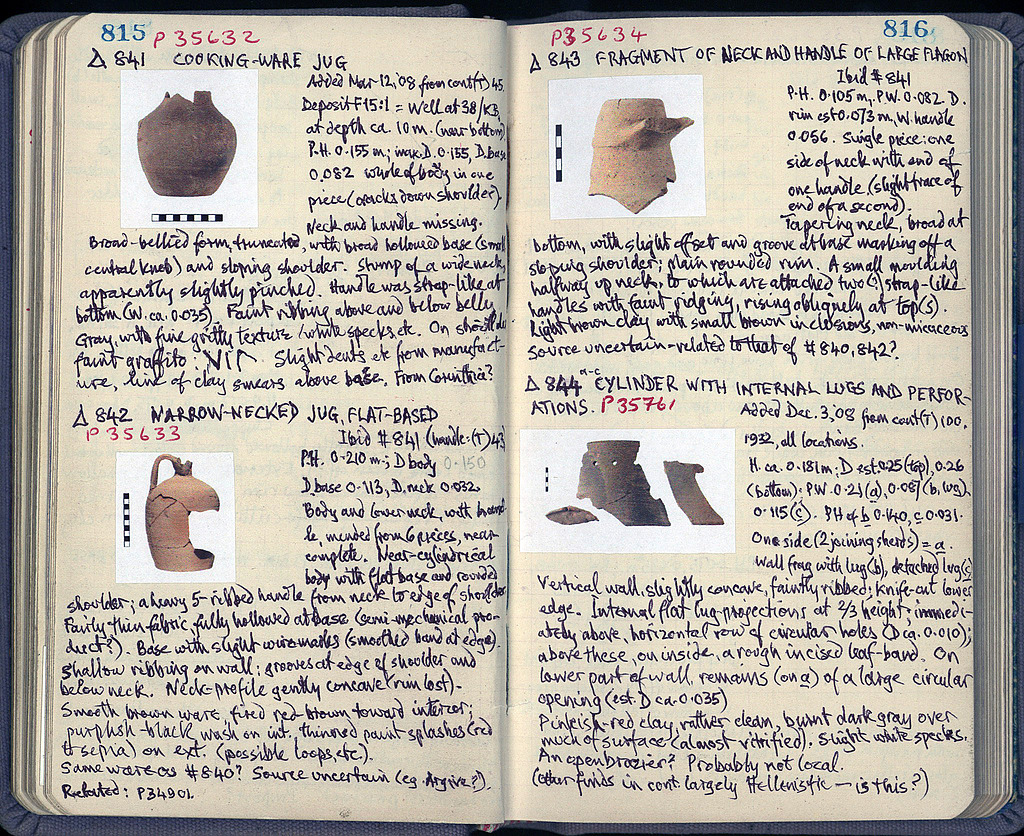 815
P 35632
Δ 841 COOKING-WARE JUG
Added Mar 12, '08 from cont (T) 45.
Deposit F 15:1 = Well at 38/KB,
at depth ca. 10 m. (near bottom)
P.H. 0.155 m; max. D. 0.155, D. base
0.082 whole of body in one
piece (cracks down shoulder).
Neck and handle missing.
Broad-bellied form, truncated, with broad hollowed base (small
central knob) and sloping shoulder. Stump of a wide neck,
apparently slightly pinched. Handle was strap-like at
bottom (W. ca. 0.035). Faint ribbing above and below belly.
Gray, with fine gritty texture, white specks etc. On shoulder
faint graffito:
Slight dents etc from manufact-
ure, line of clay smears above base. From Corinthia?
Δ 842 NARROW-NECKED JUG, FLAT-BASED
P 35633
Ibid # 841 (handle: (T) 43)
P.H. 0.210 m; D body 0.150
D. base 0.113, D. neck 0.032.
Body and lower neck, with
handle, mended from 6 pieces, near-
complete. Near-cylindrical
body with flat base and rounded
shoulder; a heavy 5-ribbed handle from neck to edge of shoulder
Fairly thin fabric, fully hollowed at base (semi-mechanical pro-
duct?). Base with slight wiremarks (smoothed band at edge).
Shallow ribbing on wall; grooves at edge of shoulder and
below neck. Neck-profile gently concave (rim lost).
Smooth brown ware, fired red-brown toward interior;
purplish-black wash on int. thinned paint splashes (red
& sepia) on ext. (possible loops, etc).
Same ware as #840? Source uncertain (eg. Argive?).
Related: P34901.
816
P35634
Δ 843 FRAGMENT OF NECK AND HANDLE OF LARGE FLAGON
Ibid # 841
P.H. 0.105 m, P.W. 0.082. D.
rim est 0.073 m, W. handle
0.056. Single piece: one
side of neck with end of
one handle (slight trace of
end of a second).
Tapering neck, broad at
bottom, with slight offset and groove at base marking off a
sloping shoulder; plain rounded rim. A small moulding
halfway up neck, to which are attached two (?) strap-like
handles with faint ridging, rising obliquely at top(s).
Light brown clay with small brown inclusions, non-micaceous
Source uncertain - related to that of #840, 842?
Δ 844 a-c CYLINDER WITH INTERNAL LUGS AND PERFOR-
ATIONS. P35761
Added Dec. 3, '08 from cont (T) 100,
1932, all locations.
H. ca. 0.181 m; D est. 0.25 (top), 0.26
(bottom). P.W. 0.21 (a), 0.087 (b, lug).
0.115 (c). PH of b 0.140, c 0.031.
One side (2 joining sherds) = a.
Wall frag with lug (b), detached lug (c)
Vertical wall, slightly concave, faintly ribbed; knife-cut lower
edge. Internal flat lug-projections at 2/3 height; immedi-
ately above, horizontal row of circular holes (D ca. 0.010);
above these, on inside, a rough incised leaf-band. On
lower part of wall, remains (on a) of a large circular
opening (est. D ca 0.035)
Pinkish-red clay, rather clean, burnt dark gray over
much of surface (almost vitrified). Slight white specks.
An open brazier? Probably not local.
(other finds in cont. largely Hellenistic — is this?)